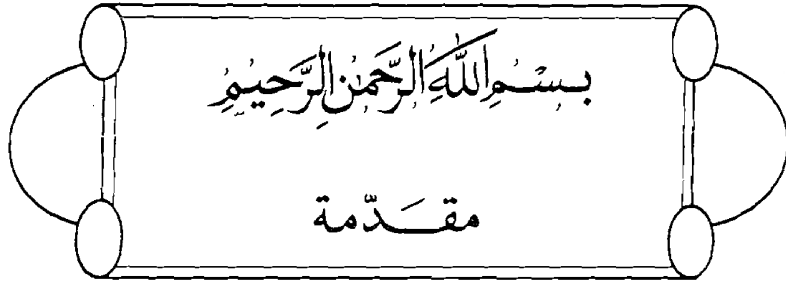 بِسْمِ اللَّهِ الرَّحْمَٰنِ الرَّحِيمِ
مقَدّمة